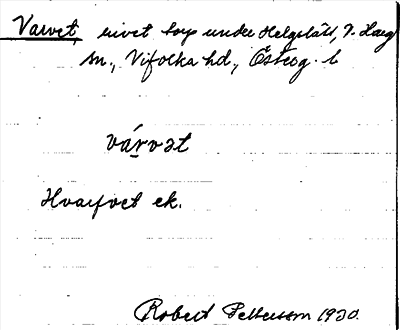 Varvet, rivet torp under Helgslätt, V. Harg
sn., Vifolka hd., Österg. l
várvət
Hvarfvet ek.
Robert Pettersson 1930.